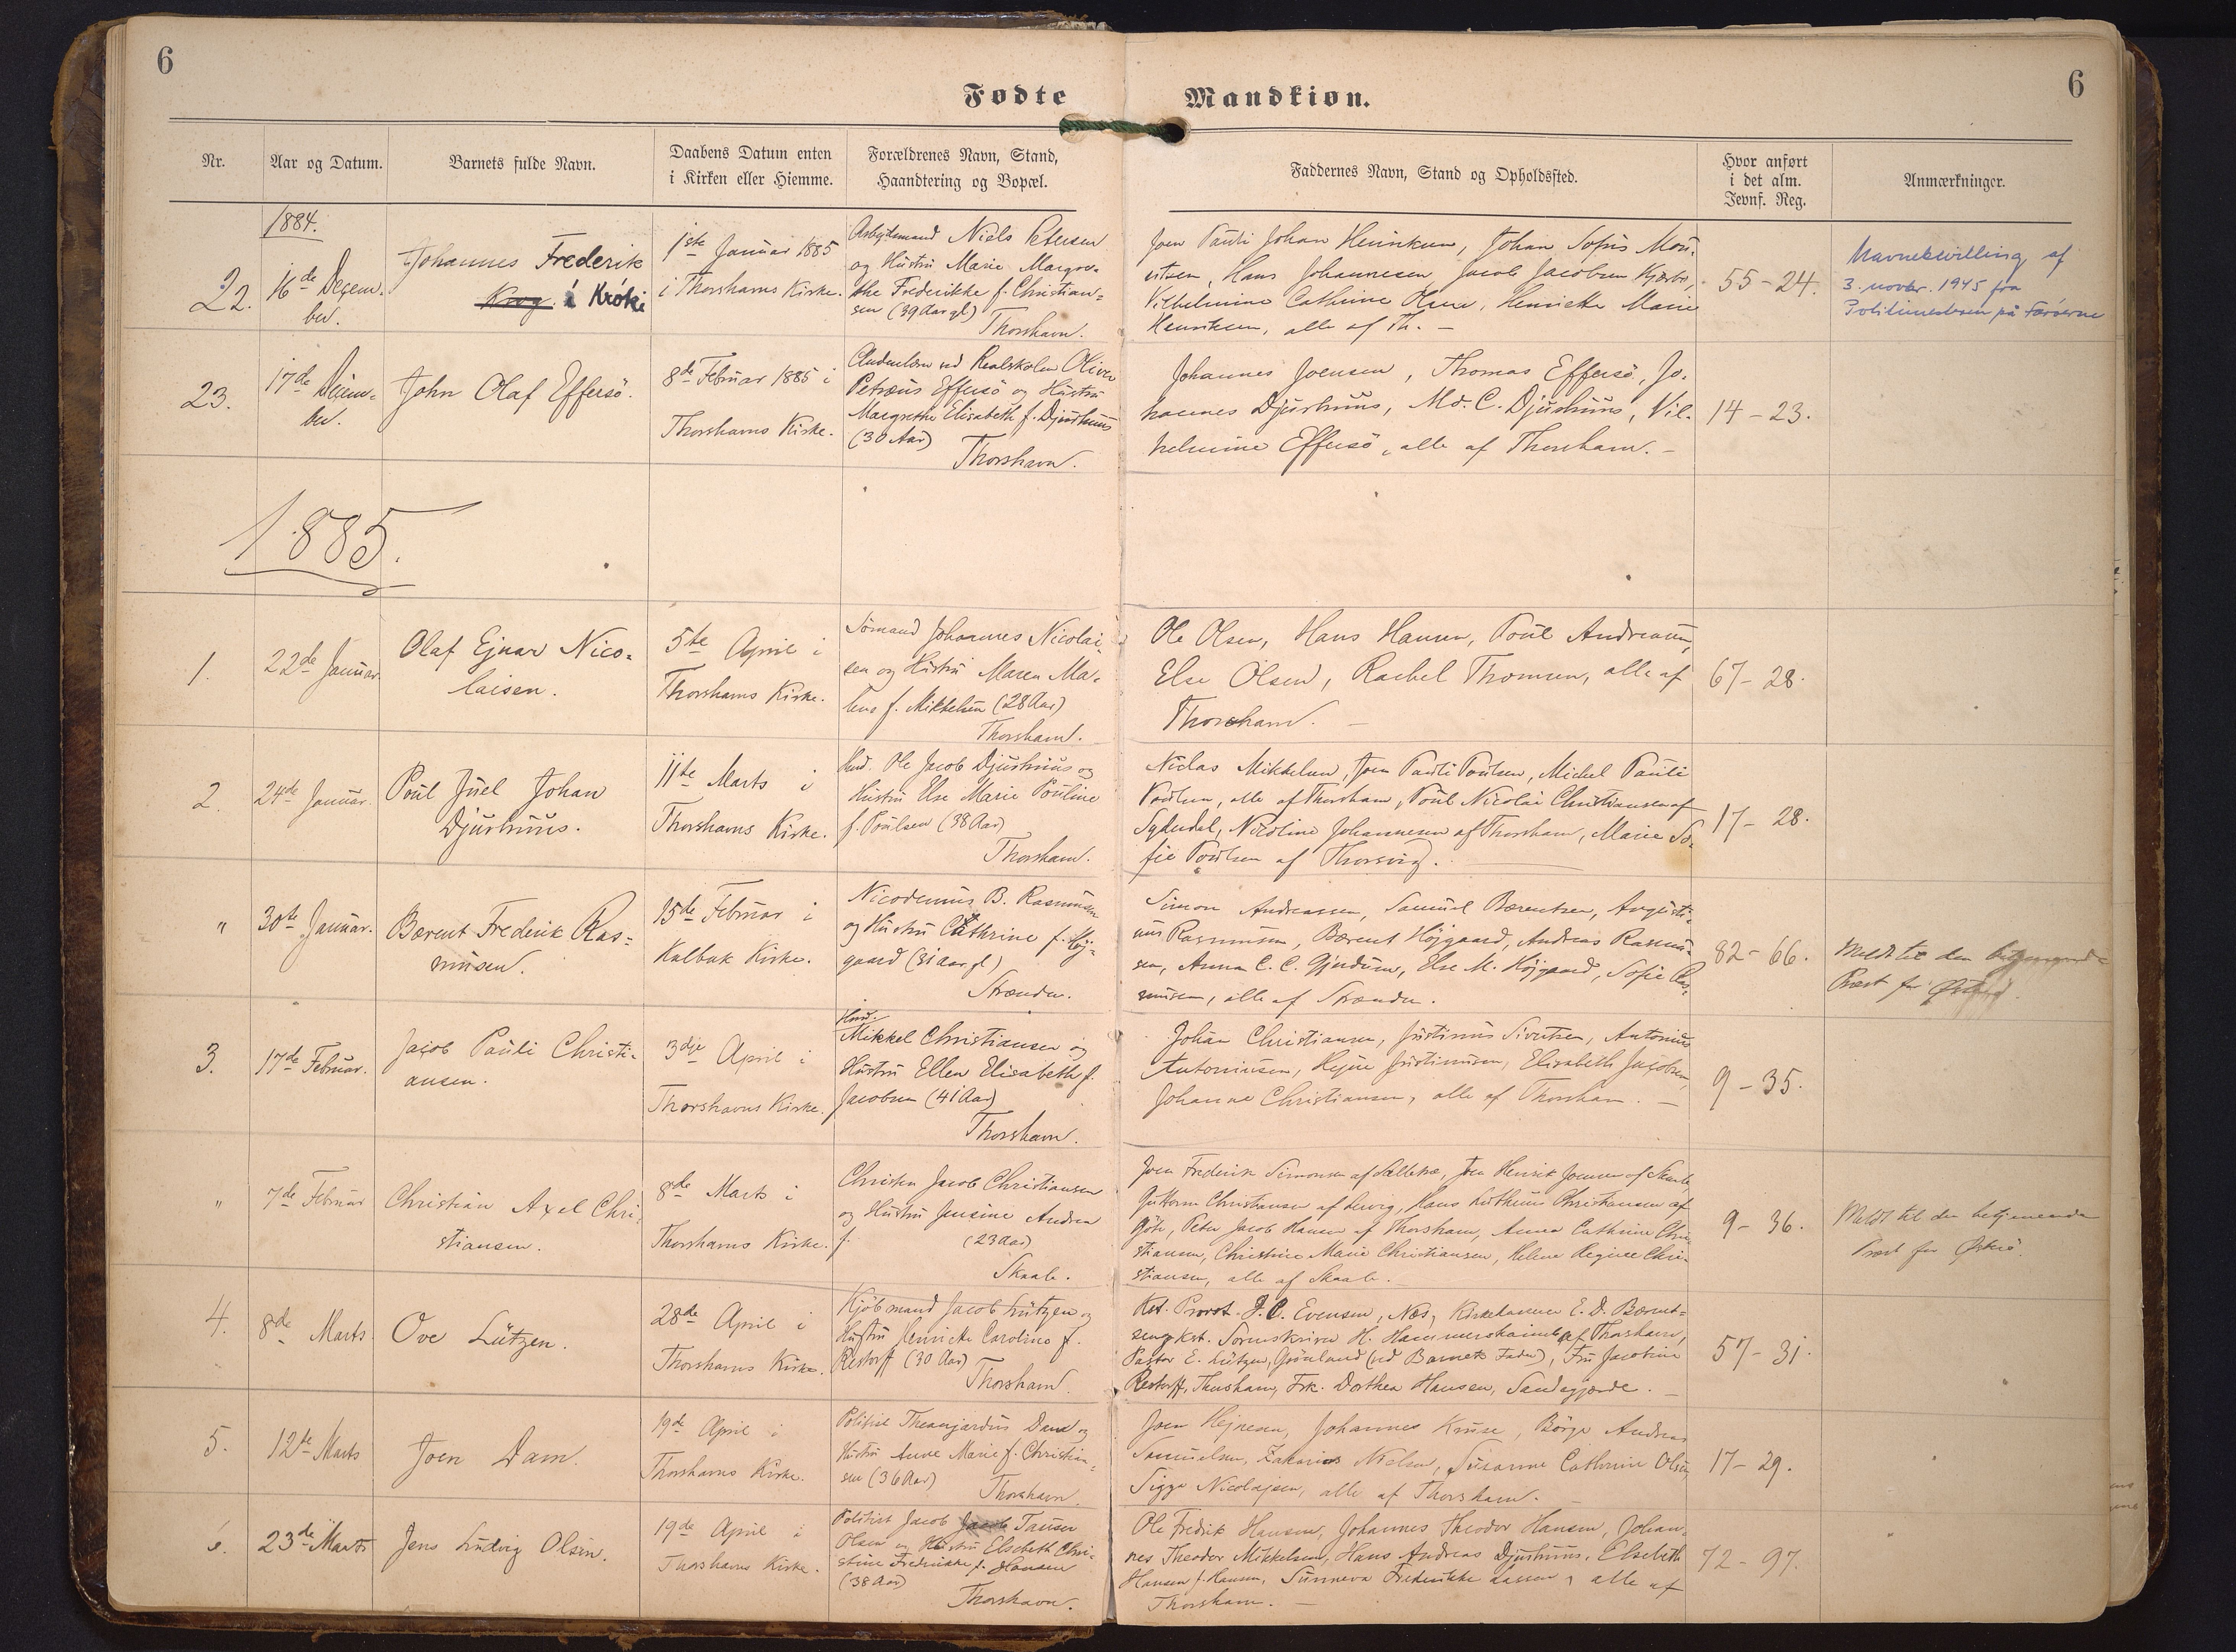 6
6
Fødte
Mandkiøn.
Nr.
Aar og Datum.
Barnets fulde Navn.
Daabens Datum enten
i Kirken eller Hiemme.
Forældrenes Navn, Stand,
Haandtering og Bopæl.
Faddernes Navn, Stand og Opholdssted.
Hvor anført
i det alm.
Jevnf. Reg.
Anmærkninger.
1884.
22.
16de Decem-
ber.
Johannes Frederik
Krog í Króki
1ste Januar 1885
i Thorshavns Kirke.
Arbejdsmand Niels Petersen
og Hustru Marie Margre-
the Frederikke f. Christian-
sen (39 Aar gl)
Thorshavn.
Joen Pauli Johan Henriksen, Johan Sofus Mou-
ritsen, Hans Johannesen, Jacob Jacobsen Kjærbo,
Vilhelmine Cathrine Olsen, Henriette Marie
Henriksen, alle af Th. —
55 - 24.
Navnebevilling af
3. novbr. 1945 fra
Politimesteren på Færøerne
23.
17de Decem-
ber.
John Olaf Effersö.
8de Februar 1885 i
Thorshavns Kirke.
Andenlærer ved Realskolen Oliver
Petræus Effersö og Hustru
Margrethe Elisabeth f. Djurhuus
(30 Aar)
Thorshavn.
Johannes Joensen, Thomas Effersö, Jo-
hannes Djurhuus, Md. C. Djurhuus, Vil-
helmine Effersö, alle af Thorshavn. —
14 - 23.
1885.
1.
22de Januar.
Olaf Ejnar Nico-
laisen.
5te April i
Thorshavns Kirke.
Sömand Johannes Nicolai-
sen og Hustru Maren Ma-
lene f. Mikkelsen (28 Aar)
Thorshavn.
Ole Olsen, Hans Hansen, Poul Andreasen,
Else Olsen, Rachel Thomsen, alle af
Thorshavn. —
67 - 28.
2.
24de Januar.
Poul Juel Johan
Djurhuus.
11te Marts i
Thorshavns Kirke.
Hmd. Ole Jacob Djurhuus og
Hustru Else Marie Pouline
f. Poulsen (38 Aar)
Thorshavn.
Niclas Mikkelsen, Joen Pauli Poulsen, Michel Pauli
Poulsen, alle af Thorshavn, Poul Nicolai Christiansen af
Sydredal, Nicoline Johannesen af Thorshavn, Marie So-
fie Poulsen af Thorsvig.
17 - 28.
"
30te Januar.
Bærent Frederik Ras-
mussen.
15de Februar i
Kalbak Kirke.
Nicodemus B. Rasmussen
og Hustru Cathrine f. Höj-
gaard (31 Aar gl)
Strænder.
Simon Andreassen, Samuel Bærentsen, Augusti-
nus Rasmussen, Bærent Höjgaard, Andreas Rasmus-
sen, Anna C. C. Gjndsen, Else M. Höjgaard, Sofie Ras-
mussen, alle af Strænder.
82 - 66.
Meldt til den betjenende
Præst for Østerö.
3.
17de Februar.
Jacob Pauli Christi-
ansen.
3dje April i
Thorshavns Kirke.
Hmd.
Mikkel Christiansen og
Hustru Ellen Elisabeth f.
Jacobsen (41 Aar)
Thorshavn.
Johan Christiansen, Justinus Sivertsen, Antonius
Antoniusen, Hejne Justinusen, Elisabeth Jacobsen,
Johanne Christiansen, alle af Thorshavn. —
9 - 35.
"
7de Februar
Christian Axel Chri-
stiansen.
8de Marts i
Thorshavns Kirke.
Christen Jacob Christiansen
og Hustru Jensine Andrea
f. (23 Aar)
Skaale.
Joen Frederik Simonsen af Selletræ, Joen Henrik Joensen af Skaale,
Guttorm Christiansen af Lervig, Hans Lutherus Christiansen af
Göte, Peter Jacob Hansen af Thorshavn, Anna Cathrine Chri-
stiansen, Christine Marie Christiansen, Helene Regine Chri-
stiansen, alle af Skaale.
9 - 36.
Meldt til den betjenende
Præst for Østerö.
4.
8de Marts
Ove Lützen.
28de April i
Thorshavns Kirke.
Kjöbmand Jacob Lützen og
Hustru Henriette Caroline f.
Restorff (30 Aar)
Thorshavn.
Kst. Provst J. P. Evensen, Næs, Kirkesanger E. D. Bærent-
sen, kst. Sorenskriver H. Hammershaimb af Thorshavn,
Pastor E. Lützen, Grönland (ved Barnets Fader), Fru Jacobine
Restorff, Thorshavn, Frk. Dorthea Hansen, Sandegjærde. —
57 - 31.
5.
12te Marts
Joen Dam.
19de April i
Thorshavns Kirke.
Politist Theangardus Dam og
Hustru Anne Marie f. Christian-
sen (36 Aar)
Thorshavn.
Joen Hejnesen, Johannes Kruse, Börge Andreas
Samuelsen, Zakarias Nielsen, Susanne Cathrine Olsen,
Sigga Nicolajsen, alle af Thorshavn. —
17 - 29.
6.
23de Marts
Jens Ludvig Olsen.
19de April i
Thorshavns Kirke.
Politist Jacob Tausen
Olsen og Hustru Elsebeth Chri-
stine Frederikke f. Hansen
(38 Aar)
Thorshavn.
Ole Fredrik Hansen, Johannes Theodor Hansen, Johan-
nes Theodor Mikkelsen, Hans Andreas Djurhuus, Elsebeth
Hansen f. Hansen, Sunneva Frederikke Lassen, alle af
Thorshavn. —
72 - 97.